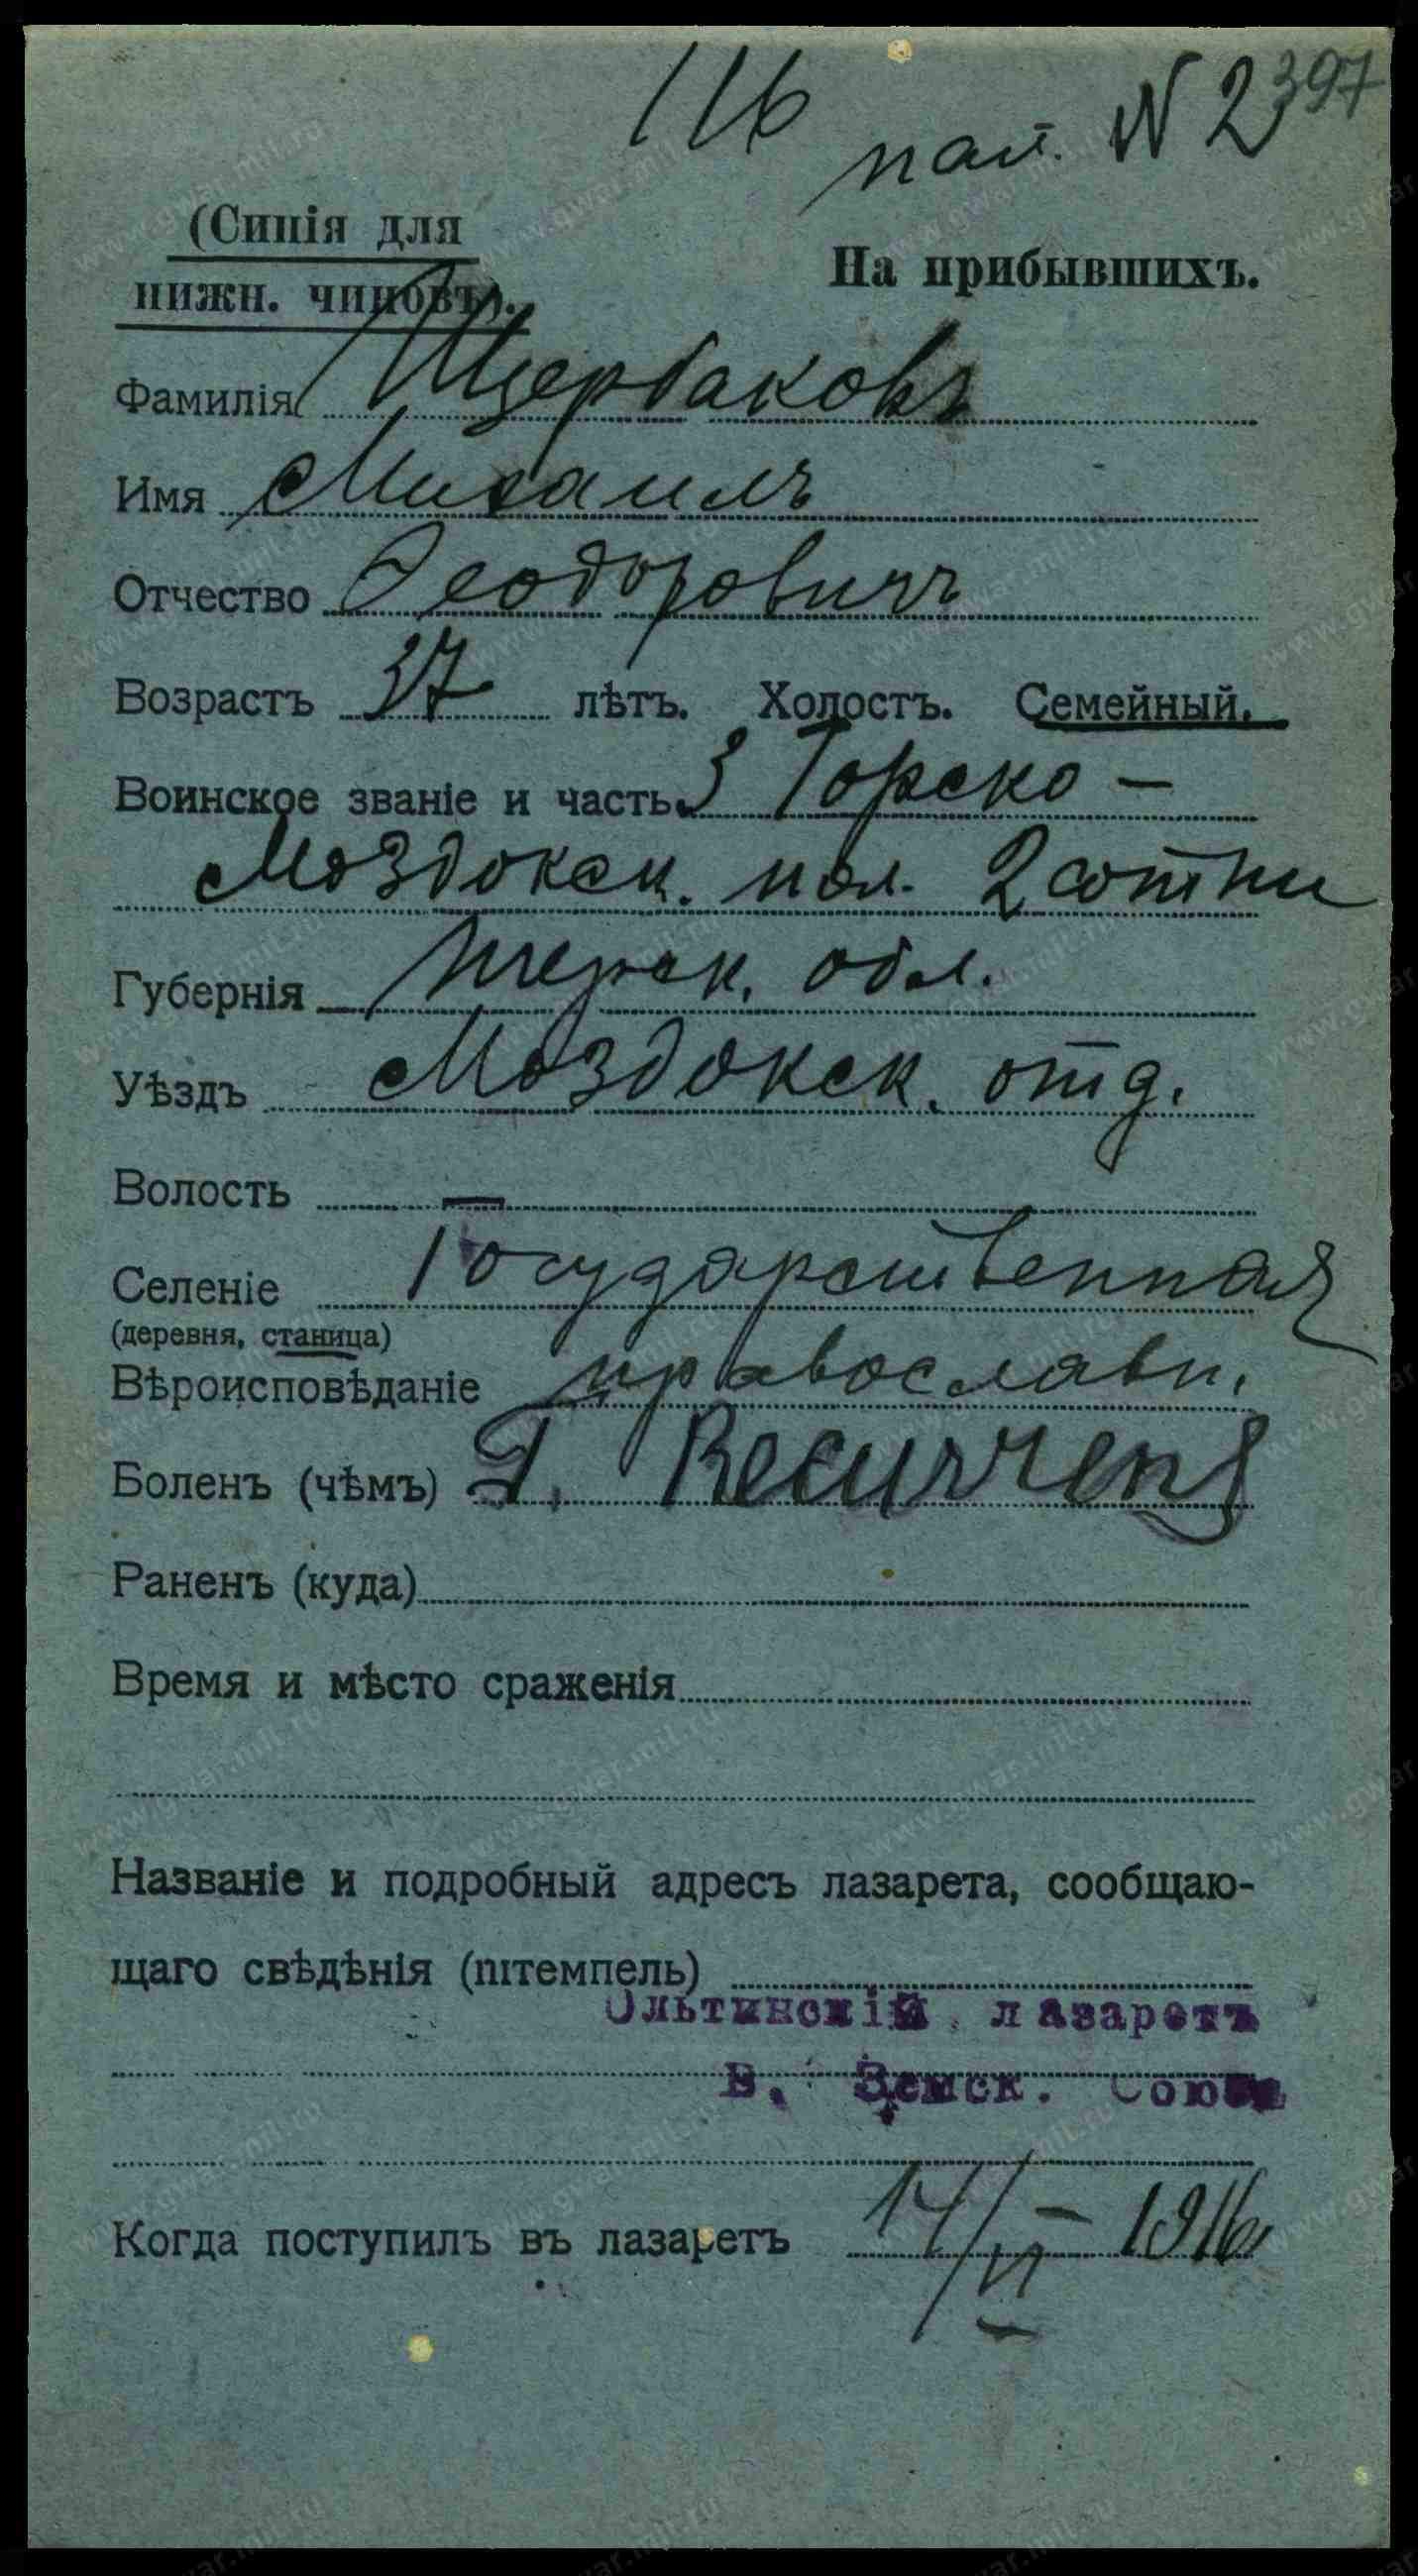 116 пал. № 2 397
(Синія для
нижн. чиновъ).
На прибывшихъ.
Фамилія Щербаковъ
Имя Михаилъ
Отчество Ѳеодоровичъ
Возрастъ 37 лѣтъ. Холостъ. Семейный.
Воинское званіе и часть 3 Горско-
Моздокск. пол. 2 сотни
Губернія Терск. обл.
Уѣздъ Моздокск. отд.
Волость —
Селеніе Государственная
(деревня, станица)
Вѣроисповѣданіе православн.
Боленъ (чѣмъ) T. Recurrens
Раненъ (куда)
Время и мѣсто сраженія
Названіе и подробный адресъ лазарета, сообщаю-
щаго свѣдѣнія (штемпель)
Ольтинскій лазаретъ
В. Земск. Союза
Когда поступилъ въ лазаретъ 14/VI – 1916